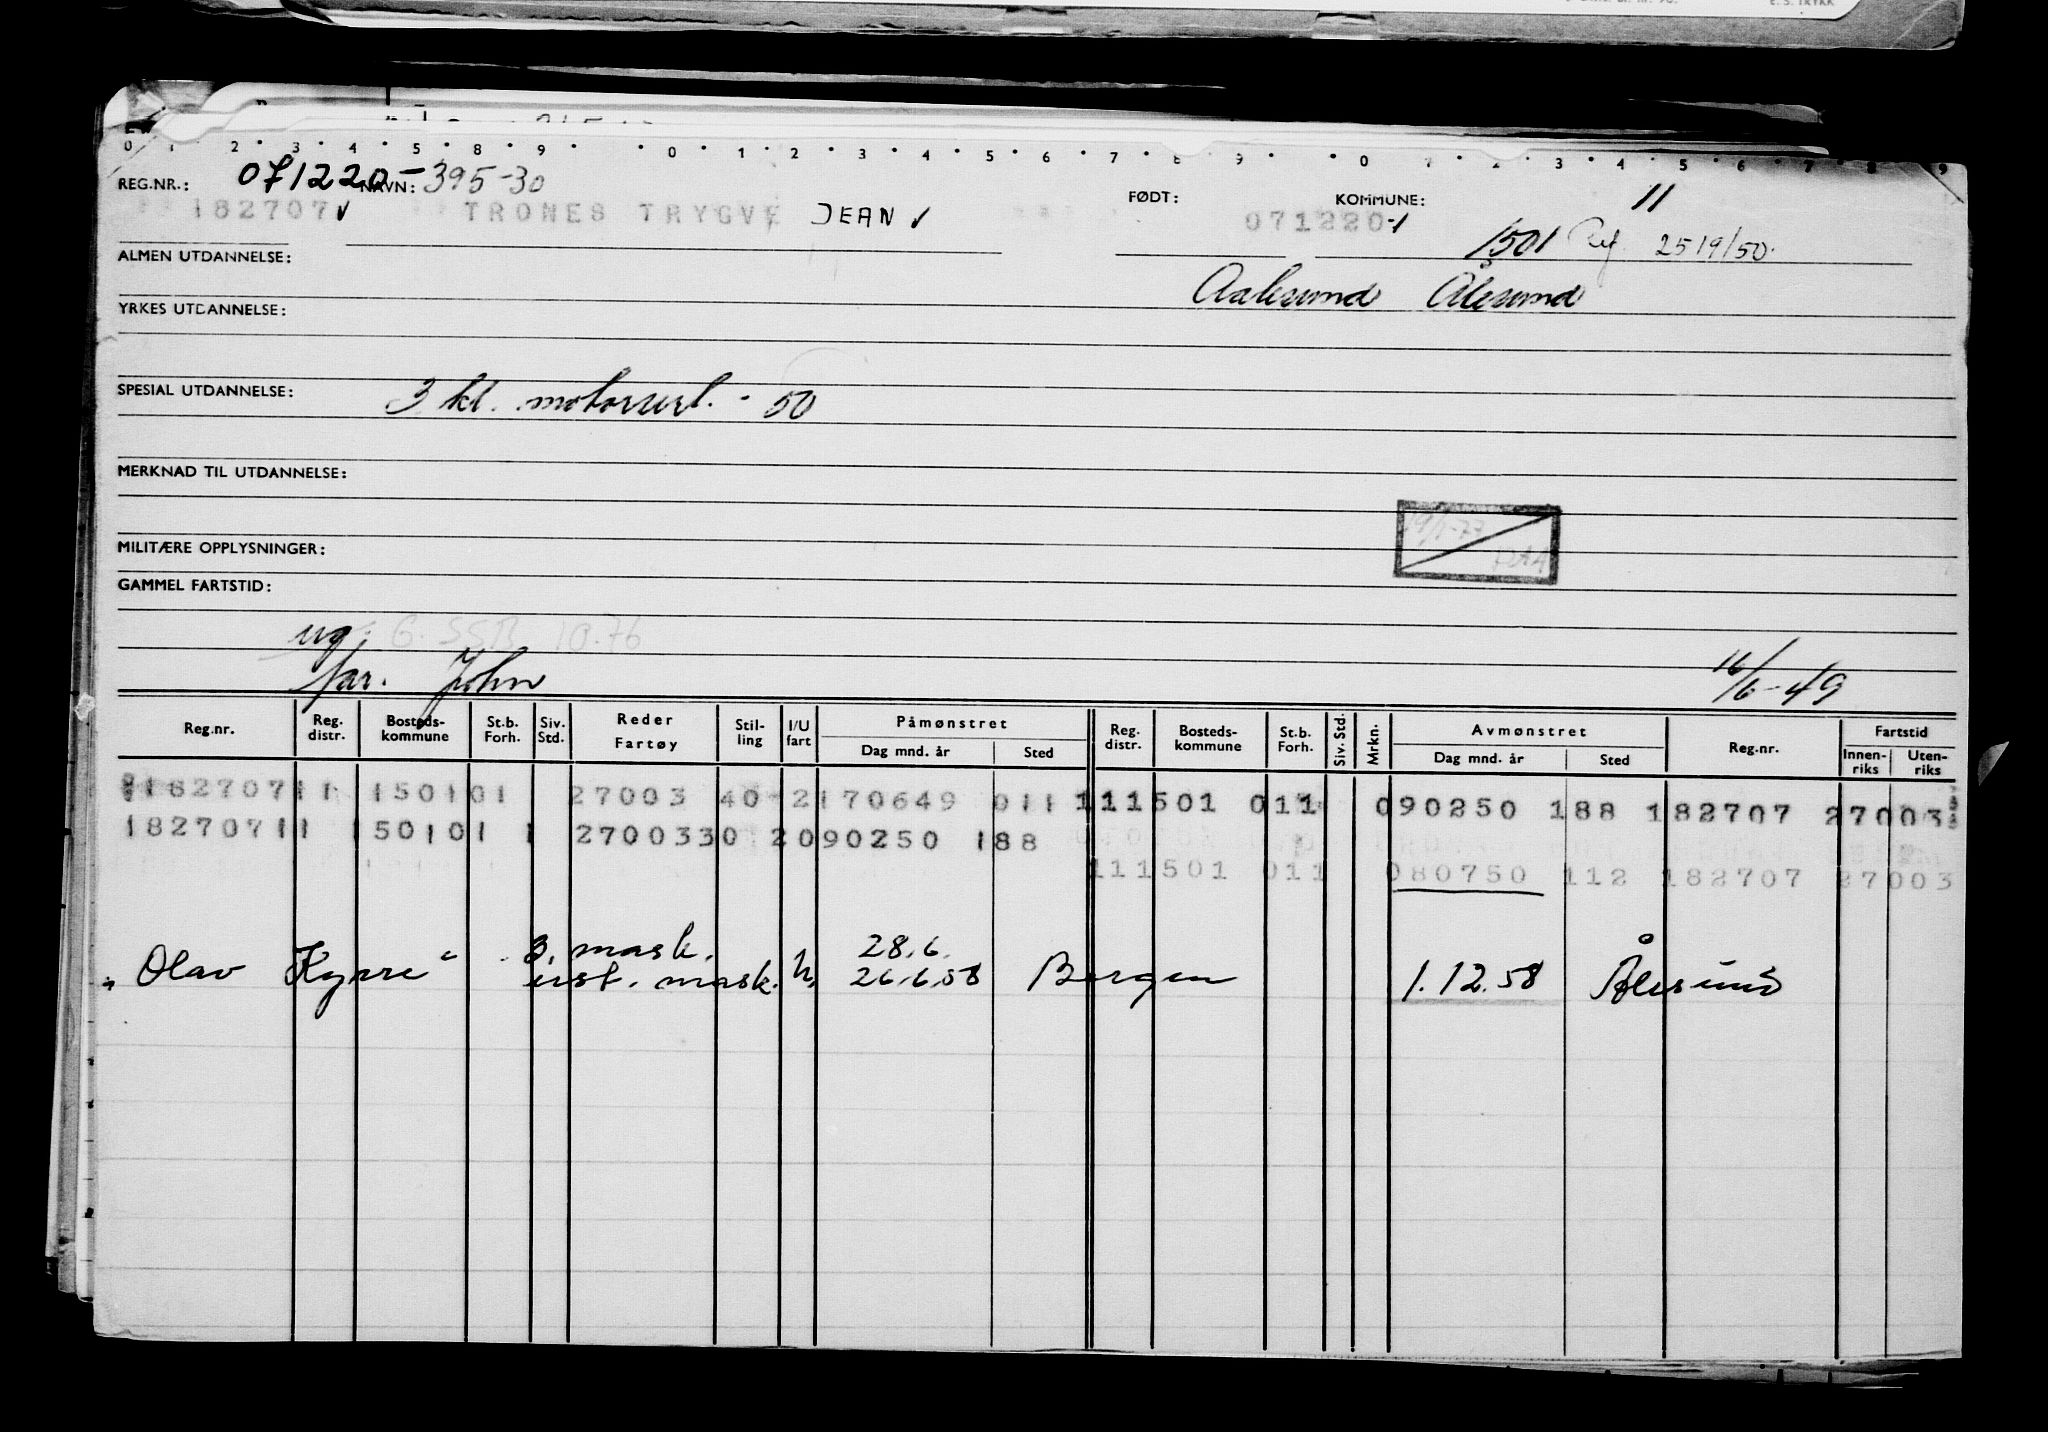 0 1 2 3 4 5 8 9 0 1 2 3 4 5 6 7 8 9 0 1 2 3 4 5 6 7 8 9
REG.NR.: 071220- NAVN: 395-30 FØDT: KOMMUNE: 11
182707 TRONES TRYGVE JEAN 071220-1 1501 2519/50.
ALMEN UTDANNELSE:
Aalesund Ålesund
YRKES UTDANNELSE:
SPESIAL UTDANNELSE: 3 kl. motorsert. - 50
MERKNAD TIL UTDANNELSE:
MILITÆRE OPPLYSNINGER:
GAMMEL FARTSTID:
ug. G. SSB 10.76
far. John 16/6-49
Reg.nr. Reg. distr. Bosteds-kommune St.b. Forh. Siv. Std. Reder Fartøy Stil-ling I/U fart Påmønstret Dag mnd. år Sted Reg. distr. Bosteds-kommune St.b. Forh. Siv. Std. Mrkn. Avmønstret Dag mnd. år Sted Reg.nr. Fartstid Innen-riks Uten-riks
182707 11 1501 01 27003 40 2 170649 011 11 1501 011 090250 188 182707 27003
182707 11 1501 01 1 27003 30 2 090250 188
11 1501 011 080750 112 182707 27003
3. mask. 28.6.
"Olav Kyrre" ust. mask. U. 26.6.58 Bergen 1.12.58 Ålesund